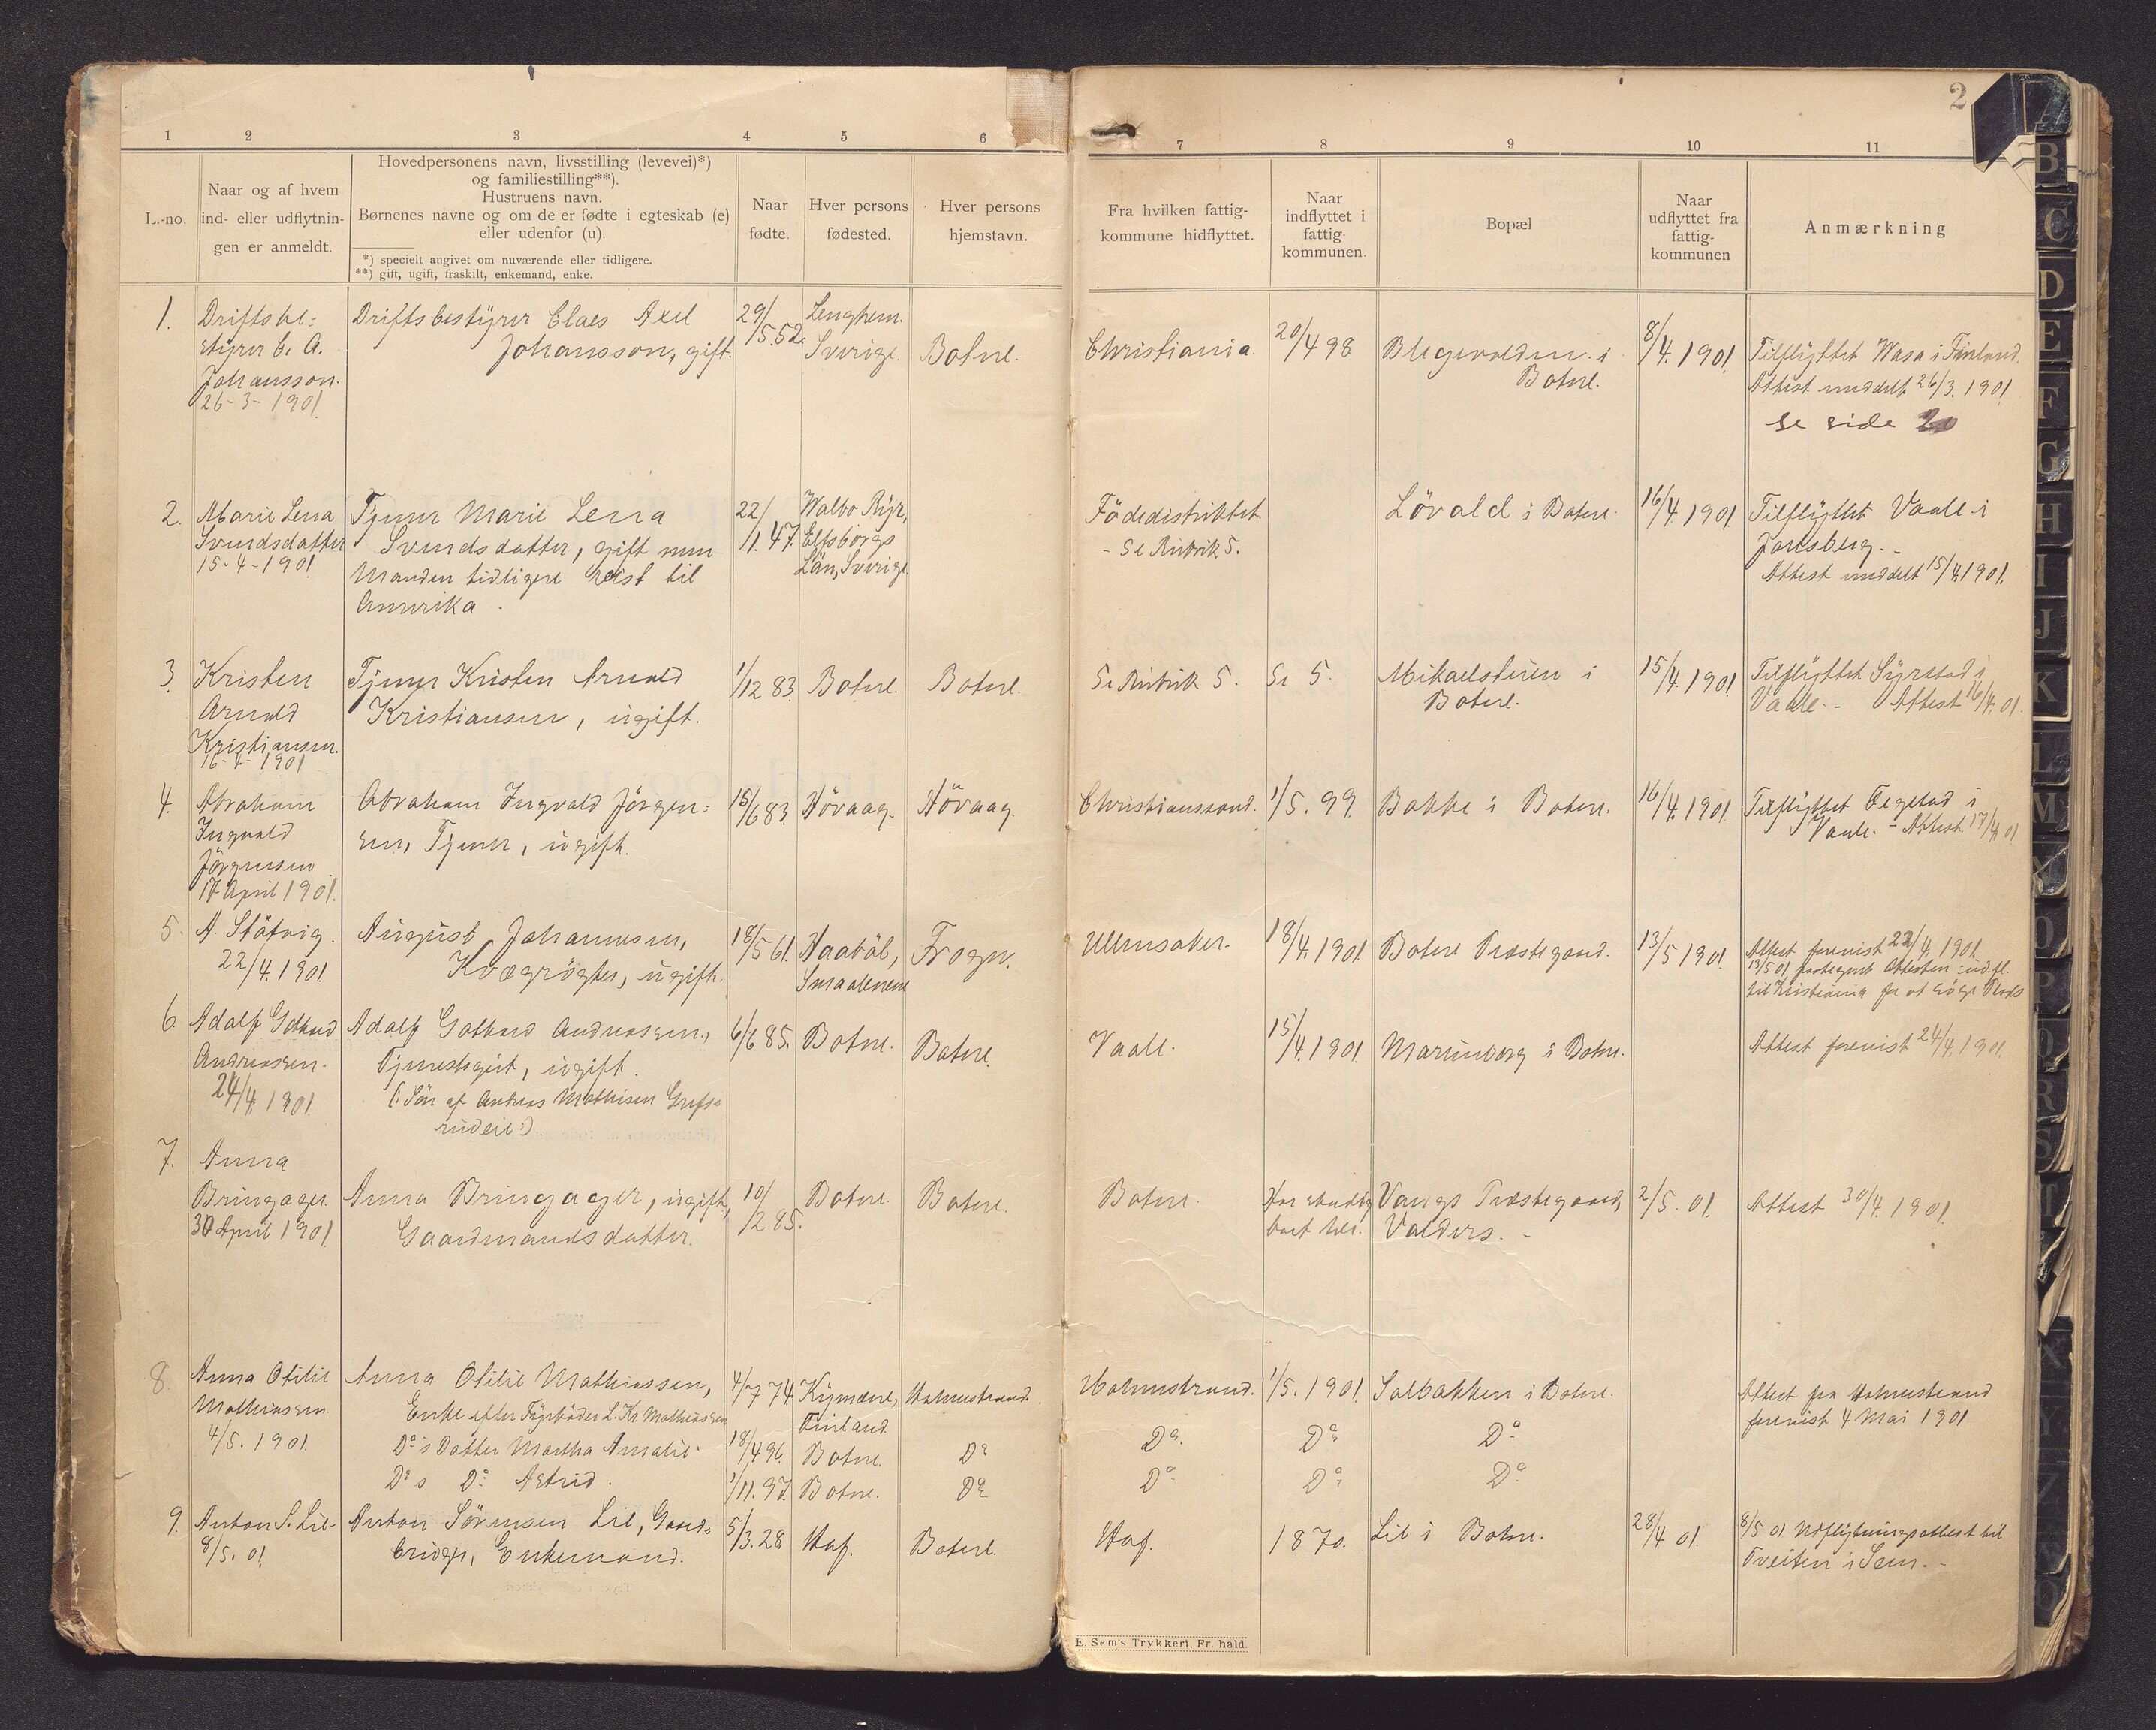 2
1 2 3 4 5 6 7 8 9 10 11
L.-no.
Naar og af hvem
ind- eller udflytnin-
gen er anmeldt.
Hovedpersonens navn, livsstilling (levevei)*)
og familiestilling**).
Hustruens navn.
Børnenes navne og om de er fødte i egteskab (e)
eller udenfor (u).
*) specielt angivet om nuværende eller tidligere.
**) gift, ugift, fraskilt, enkemand, enke.
Naar
fødte.
Hver persons
fødested.
Hver persons
hjemstavn.
Fra hvilken fattig-
kommune hidflyttet.
Naar
indflyttet i
fattig-
kommunen.
Bopæl
Naar
udflyttet fra
fattig-
kommunen
Anmærkning
1.
Driftsbe-
styrer C. A.
Johansson.
26-3-1901.
Driftsbestyrer Claes Axel
Johansson, gift.
29/5.52.
Lenghem.
Sverige.
Botne.
Christiania.
20/4 98
Blegevolden i
Botne.
8/4.1901.
Tilflyttet Wasa i Finland.
Attest meddelt 26/3.1901.
se side 20
2.
Marie Lena
Svendsdatter
15-4-1901.
Tjener Marie Lena
Svendsdatter, gift men
Manden tidligere reist til
Amerika.
22/1.47.
Walbo Ryr,
Elfsborgs
Län, Sverige.
Fødedistriktet.
- Se Rubrik 5.
Løvald i Botne.
16/4.1901
Tilflyttet Vaale i
Jarlsberg.-
Attest meddelt 15/4.1901.
3.
Kristen
Arnold
Kristiansen.
16-4-1901
Tjener Kristen Arnold
Kristiansen, ugift.
1/12 83.
Botne.
Botne.
Se Rubrik 5.
Se 5.
Mikaelstuen i
Botne.
15/4.1901.
Tilflyttet Syrstad i
Vaale.- Attest 16/4.01.
4.
Abraham
Ingvald
Jørgensen
17 April 1901.
Abraham Ingvald Jørgen-
sen, Tjener, ugift.
15/6 83.
Høvaag.
Høvaag.
Christianssand.
1/5.99.
Bakke i Botne.
16/4.1901.
Tilflyttet Fegstad i
Vaale.- Attest 17/4.01
5.
A. Støtvig.
22/4.1901
August Johannesen,
Kvægrøgter, ugift.
18/5 61.
Haabøl,
Smaalenene
Frogn.
Ullensaker.
18/4.1901.
Botne Præstegaard.
13/5 1901.
Attest forevist 22/4.1901.
13/5 01 paategnet Attesten: udfl.
til Kristiania for at søge Plads
6.
Adolf Gothard
Andreassen.
24/4.1901.
Adolf Gothard Andreassen,
Tjenestegut, ugift.
(: Søn af Andreas Mathisen Grefs-
rudeie:).
6/6 85.
Botne.
Botne.
Vaale.
15/4.1901.
Marienborg i Botne.
Attest forevist 24/4.1901.
7.
Anna
Bringager.
30 April 1901.
Anna Bringager, ugift,
Gaardmandsdatter.
10/2 85.
Botne.
Botne.
Botne.
Har stadig
boet her.
Vangs Præstegaard,
Valders.-
2/5.01.
Attest 30/4.1901.
8.
Anna Otilie
Mathiassen
4/5.1901.
Anna Otilie Mathiassen,
Enke efter Fyrbøder L. Kr Mathiassen
Do's Datter Martha Amalie.
Do s Do Astrid.
4/7 74
18/4 96.
1/11.97.
Kymene,
Finland
Botne.
Botne.
Holmestrand.
Do
Do
Holmestrand.
Do.
Do
1/5.1901.
Do
Do
Solbakken i Botne.
Do
Do
Attest fra Holmestrand
forevist 4 Mai 1901
9.
Anton S. Lie.
8/5.01.
Anton Sørensen Lie, Gaard-
bruger, Enkemand.
5/3.28.
Hof.
Botne.
Hof.
1870.
Lie i Botne.
28/4 01.
8/5 01 Udflytningsattest til
Tveiten i Sem.-
E. Sem's Trykkeri, Fr. hald.
A
B
C
D
E
F
G
H
I
J
K
L
M
O
P
Q
R
S
T